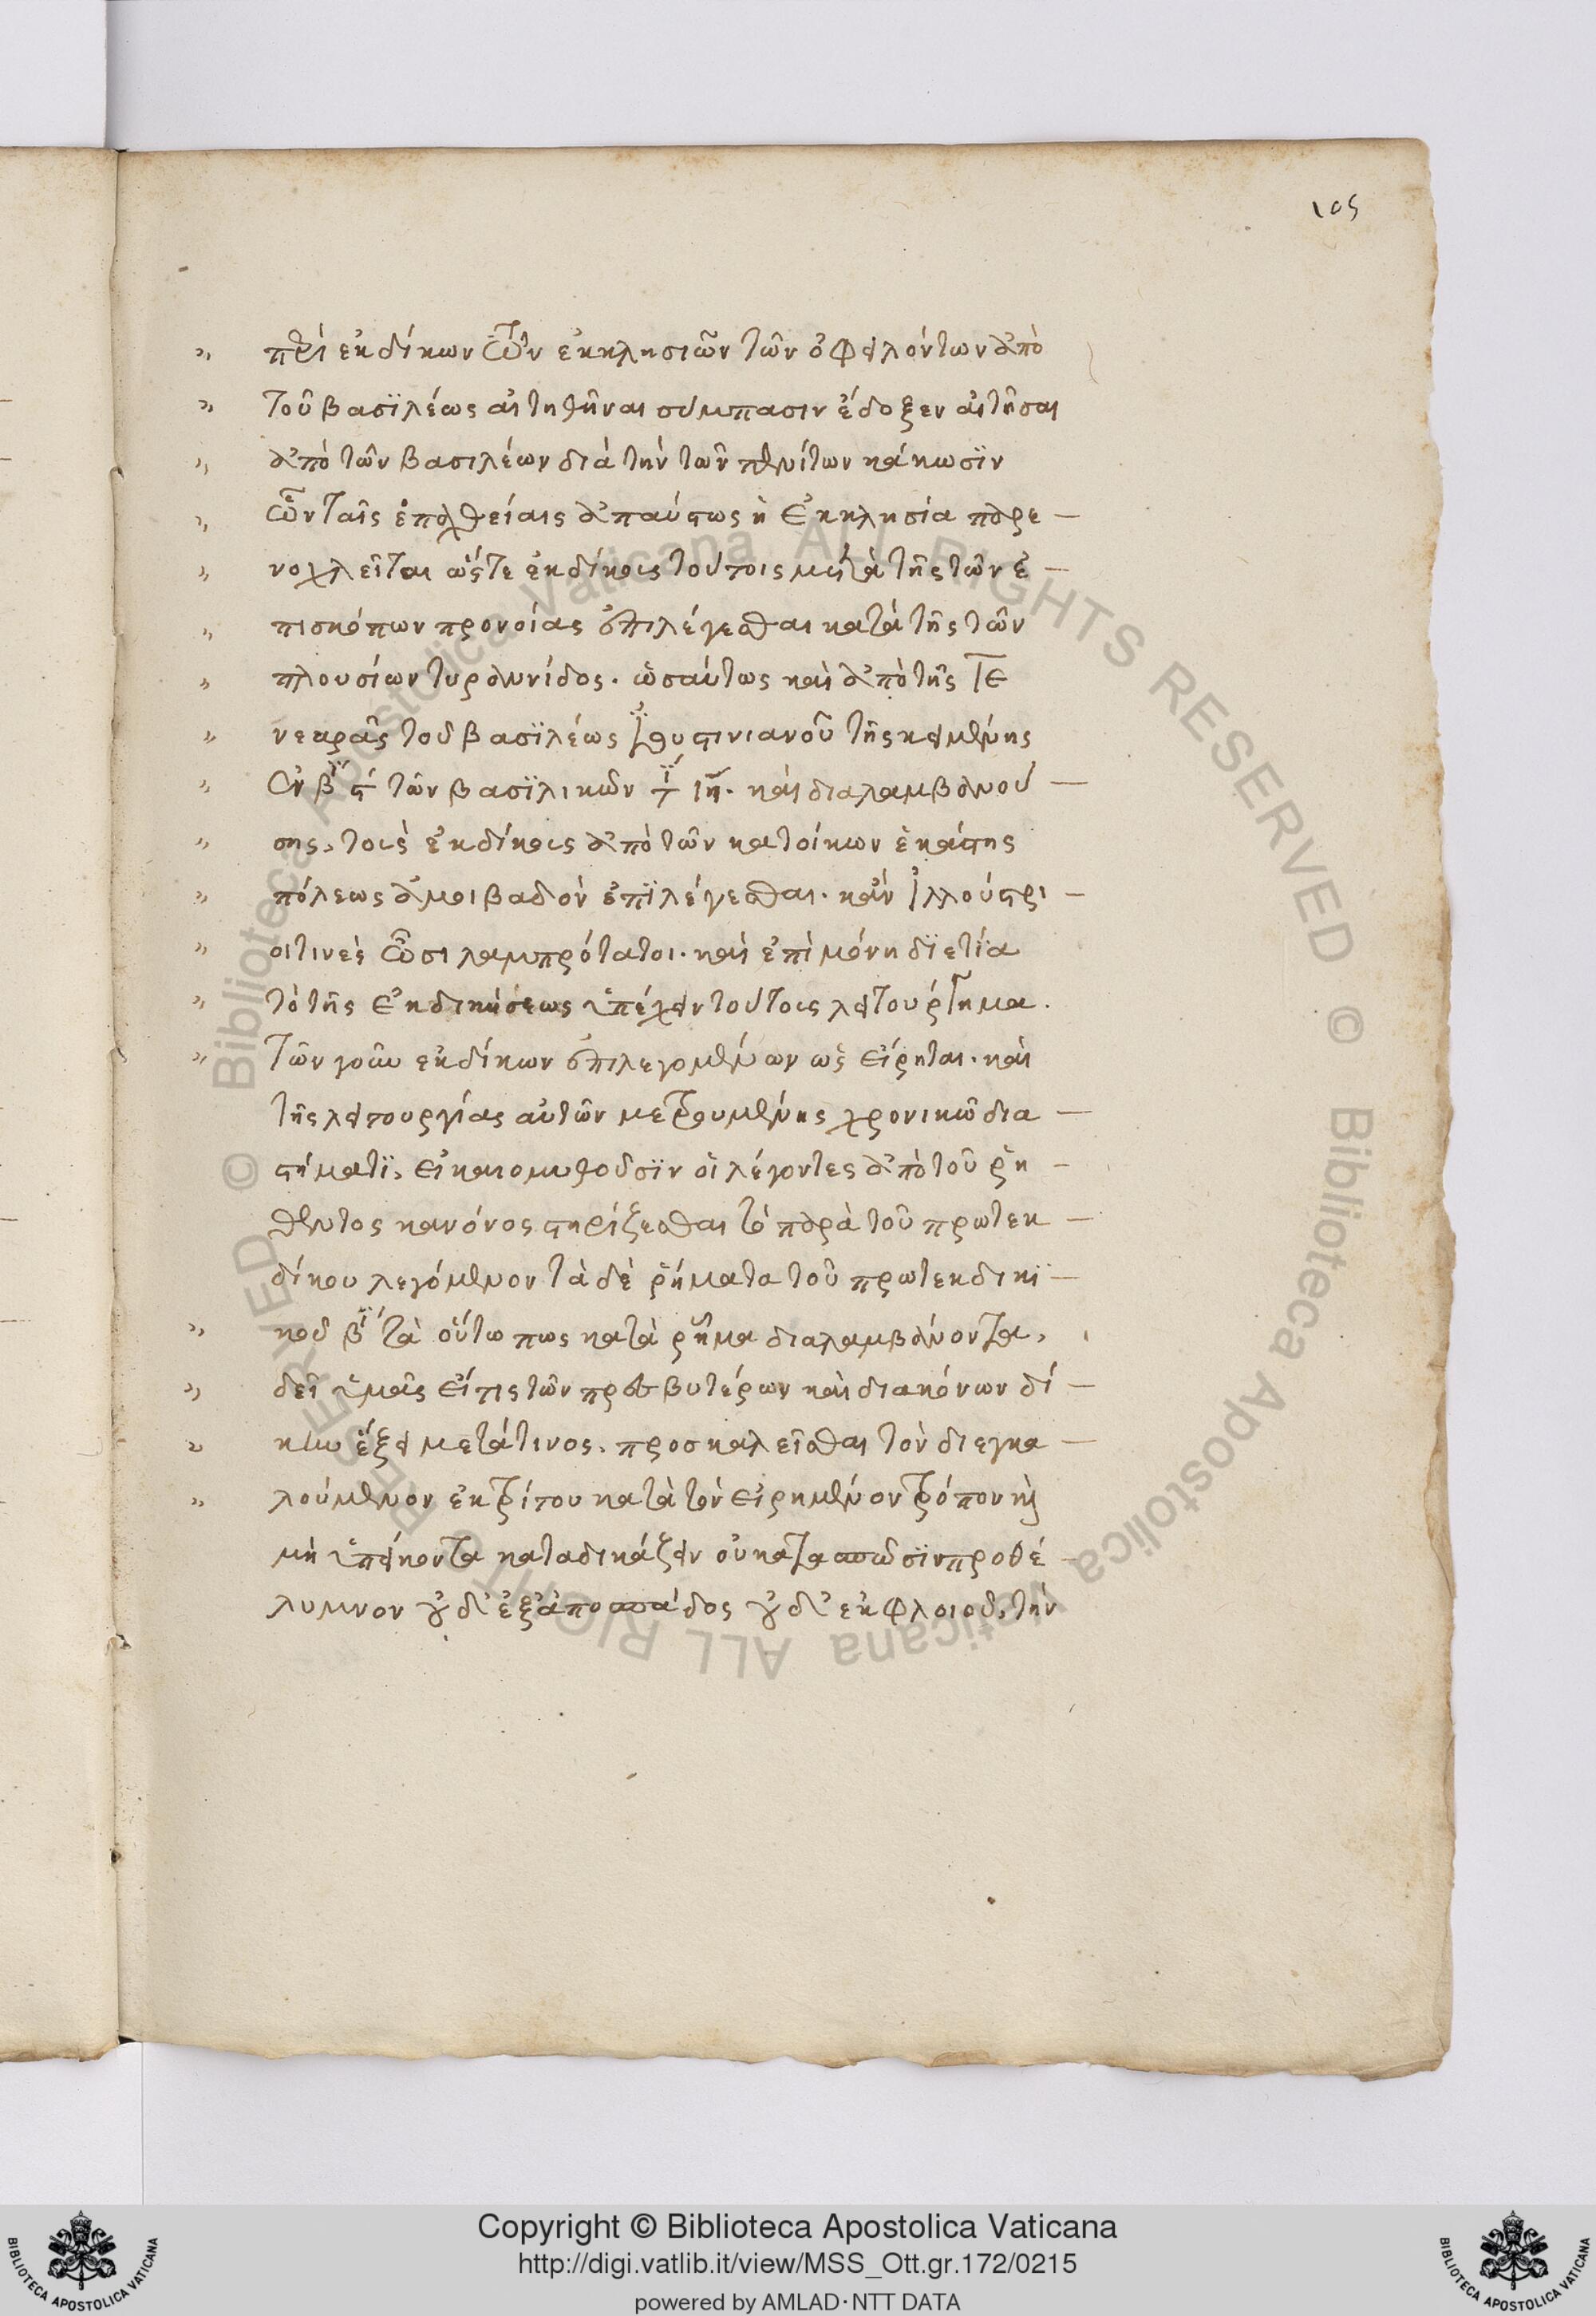 105
περὶ ἐκδίκων τῶν ἐκκλησιῶν τῶν ὀφειλόντων ἀπὸ
τοῦ βασϊλέως αἰτηθῆναι σύμπασιν ἔδοξεν αἰτῆσαι
ἀπὸ τῶν βασιλέων διὰ τὴν τῶν πενήτων κάκωσϊν
ὧν ταῖς ἐπαχθείαις ἀπαύστως ἡ ἐκκλησία παρε
νοχλεῖται ὥςτε ἐκδίκοις τούτοις μετὰ τῆς τῶν ἐ
πισκόπων προνοίας ἐπιλέγεσθαι κατὰ τῆς τῶν
πλουσίων τυραννίδος. ὡσαύτως καὶ ἀπὸ τῆς ιε
νεαρᾶς τοῦ βασϊλέως Ἰουστινιανοῦ τῆς κειμένης
ἐν β ϛ τῶν βασϊλικῶν τΐ ιη. καὶ διαλαμβανού
σης, τοὶς ἐκδίκοις ἀπὸ τῶν κατοίκων ἑκάστης
πόλεως ἀμοιβαδὸν ἐπϊλέγεσθαι. κἀν ἰλλούστρι
οι τινὲς ὦσι λαμπρότατοι. καὶ ἐπὶ μόνη δϊετία
τὸ τῆς ἐκδικήσεως ὑπέχειν τούτοις λειτούργημα.
τῶν γοῦν ἐκδίκων ἐπιλεγομένων ὡς εἴρηται. καὶ
τῆς λειτουργίας αὐτῶν μετρουμένης χρονικῶ δια
στήματϊ, εἰκαιομυθοῦσϊν οἱ λέγοντες ἀπὸ τοῦ ῥη
θέντος κανόνος στηρίζεσθαι τὸ παρὰ τοῦ πρωτεκ
δίκου λεγόμενον τὰ δὲ ῥήματα τοῦ πρωτεκδικϊ
κοῦ τὰ οὕτω πως κατὰ ῥῆμα διαλαμβάνοντα,
δεῖ ὑμᾶς εἴ τις τῶν πρεσβυτέρων καὶ διακόνων δί
κην ἕξει μετάτινος, προσκαλεῖσθαι τὸν διεγκα
λούμενον ἐκ τρίτου κατὰ τὸν εἰρημένον τρόπον καὶ
μὴ ὑπείκοντα καταδικάζειν οὐ κατασπῶσϊν προθέ
λυμνον οὐδ' ἐξ ἀποσπάδος οὐδ' ἐκ φλοιοῦ, τὴν
Copyright © Biblioteca Apostolica Vaticana
http://digi.vatlib.it/view/MSS_Ott.gr.172/0215
powered by AMLAD·NTT DATA